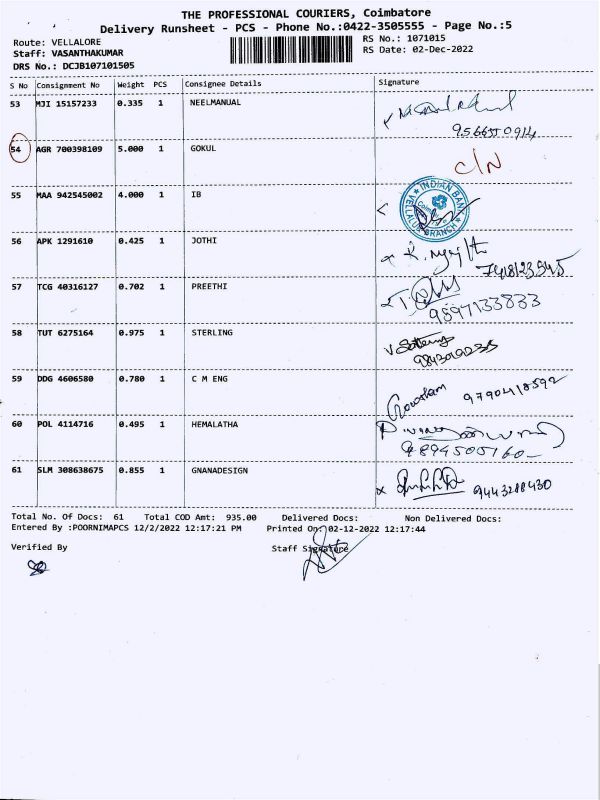 THE PROFESSIONAL COURIERS, Coimbatore
Delivery Runsheet - PCS - Phone No.:0422-3505555 - Page No.:5
Route: VELLALORE
RS No.: 1071015
Staff: VASANTHAKUMAR
RS Date: 02-Dec-2022
DRS No.: DCJB107101505
S No Consignment No Weight PCS Consignee Details Signature
53 MJI 15157233 0.335 1 NEELMANUAL
54 AGR 700398109 5.000 1 GOKUL
C/N
55 MAA 942545002 4.000 1 IB
INDIAN BANK
VELLALUR BRANCH
56 APK 1291610 0.425 1 JOTHI
57 TCG 40316127 0.702 1 PREETHI
9597133833
58 TUT 6275164 0.975 1 STERLING
59 DDG 4606580 0.780 1 C M ENG
9790418592
60 POL 4114716 0.495 1 HEMALATHA
9894505160
61 SLM 308638675 0.855 1 GNANADESIGN
Total No. Of Docs: 61 Total COD Amt: 935.00 Delivered Docs: Non Delivered Docs:
Entered By :POORNIMAPCS 12/2/2022 12:17:21 PM Printed On: 02-12-2022 12:17:44
Verified By Staff Signature